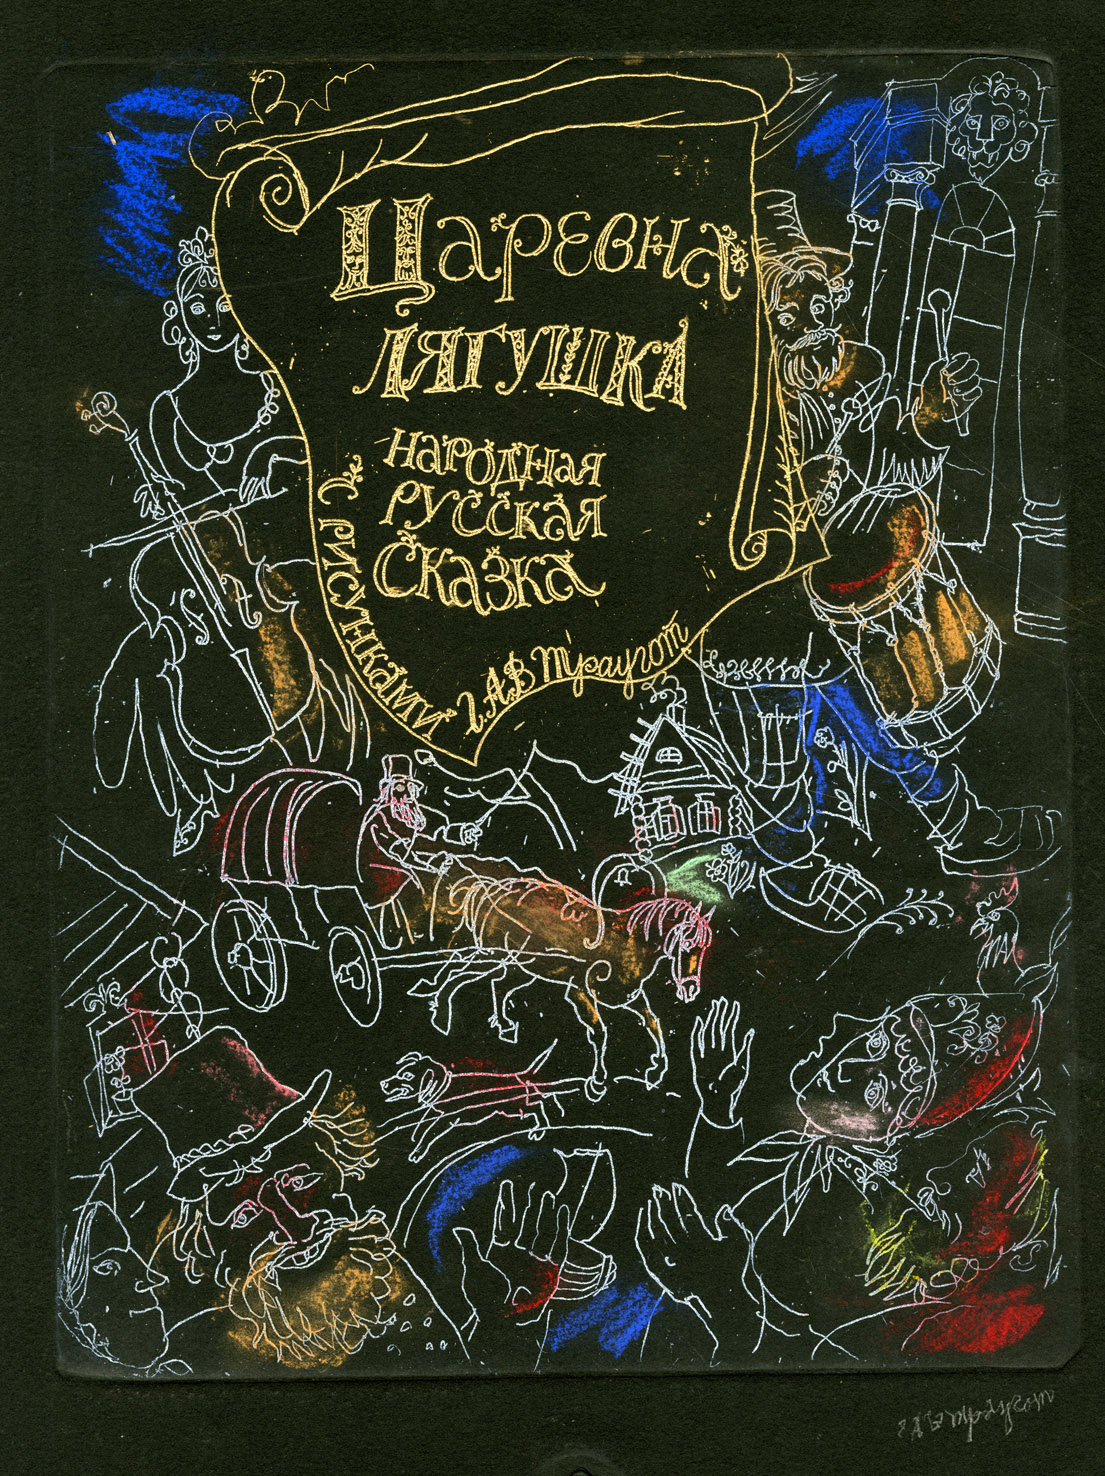 Царевна
лягушка
народная
русская
сказка
с рисунками
Г.А.В Траугот